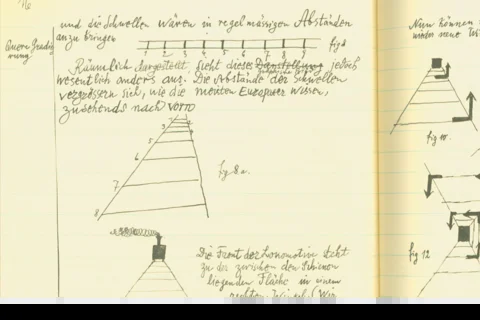 und die Schwellen wären in regelmässigen Abständen
anzubringen
1 2 3 4 5 6 7 8 9
fig 8
Räumlich dargestellt sieht diese Darstellung jedoch
wesentlich anders aus. Die Abstände der Schwellen
vergrössern sich, wie die meisten Europäer wissen,
zusehends nach vorn
5
6
7
8
fig 8 a.
Die Front der Lokomotive steht
zu der zwischen den Schienen
liegenden Fläche in einem
rechten Winkel (Wir
Nun können
wieder neue
fig 10
fig 12